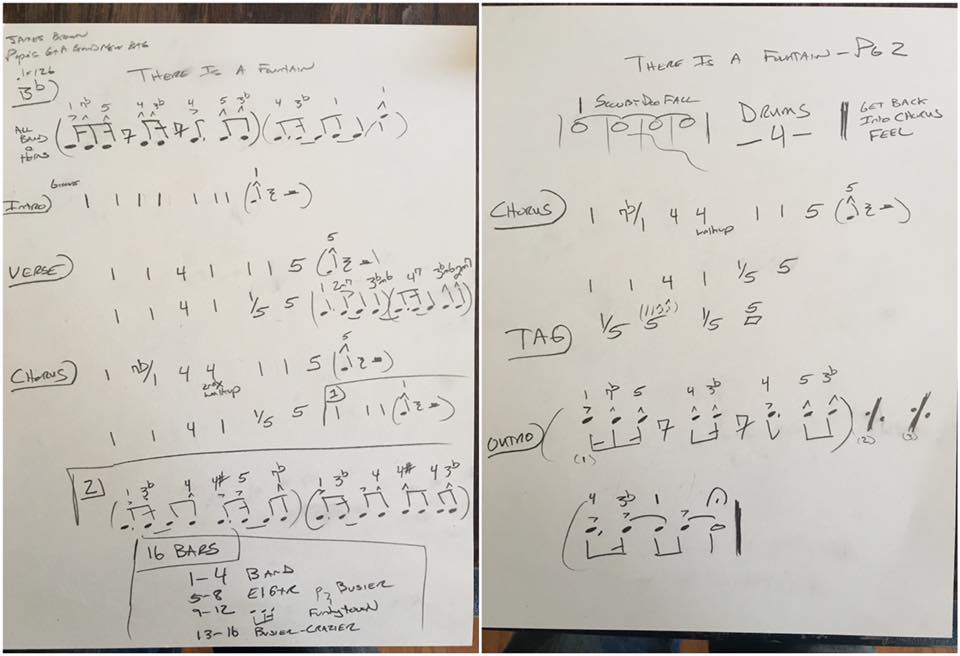 JAMES BROWN
PAPA'S GOT A BRAND NEW BAG
♩=126
3b)
THERE IS A FOUNTAIN
ALL BAND & HORNS (1 7b 5 4 3b 4 5 3b) (4 3b 1 1)
INTRO) GROOVE 1 1 1 1 1 1 1 (1)
VERSE) 1 1 4 1 1 1 5 (5)
1 1 4 1 1/5 5 (1 2m7 3b 3b) (4 4 7)
CHORUS) 1 7b/1 4 4 1 1 5 (5)
2nd x walkup
1 1 4 1 1/5 5 1) 1 1 1 (1)
2) (1 3b 4 4# 5 7b) (1 3b 4 4# 4 3b)
16 BARS
1-4 BAND
5-8 EL GTR BUSIER
9-12 FUNKYTOWN
13-16 BUSIER-CRAZIER
THERE IS A FOUNTAIN - PG 2
1 SCOOBY-DOO FALL
DRUMS
- 4 -
GET BACK
INTO CHORUS
FEEL
CHORUS) 1 7b/1 4 4 1 1 5 (5)
walkup
1 1 4 1 1/5 5
TAG 1/5 5 1/5 5
OUTRO) (1 7b 5 4 3b 4 5 3b) ٪ ٪
(1) (2) (3)
(4 3b 1)